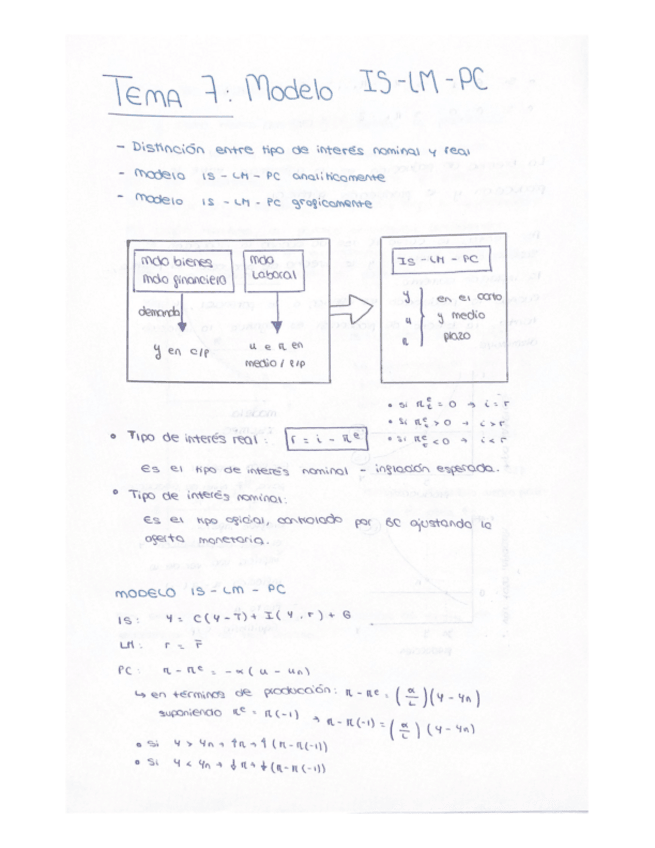 TEMA 7: Modelo IS-LM-PC
- Distinción entre tipo de interés nominal y real
- Modelo IS-LM-PC analíticamente
- Modelo IS-LM-PC graficamente
mdo bienes
mdo financiero
mdo
Laboral
demanda
y en c/p
u e π en
medio / l/p
IS-LM-PC
y
u
π
en el corto
y medio
plazo
• Si πᵉₜ = 0 → i = r
• Si πᵉₜ > 0 → i > r
• Si πᵉₜ < 0 → i < r
• Tipo de interés real: r = i - πᵉ
Es el tipo de interés nominal - inflación esperada.
• Tipo de interés nominal:
Es el tipo oficial, controlado por BC ajustando la
oferta monetaria.
MODELO IS-LM-PC
IS: Y = C(Y-T) + I(Y,r) + G
LM: r = r̄
PC: π - πᵉ = -α(u - un)
↳ en términos de producción: π - πᵉ = (α/L)(Y - Yn)
suponiendo πᵉ = π(-1) → π - π(-1) = (α/L)(Y - Yn)
• Si Y > Yn → ↑π → ↑(π - π(-1))
• Si Y < Yn → ↓π → ↓(π - π(-1))